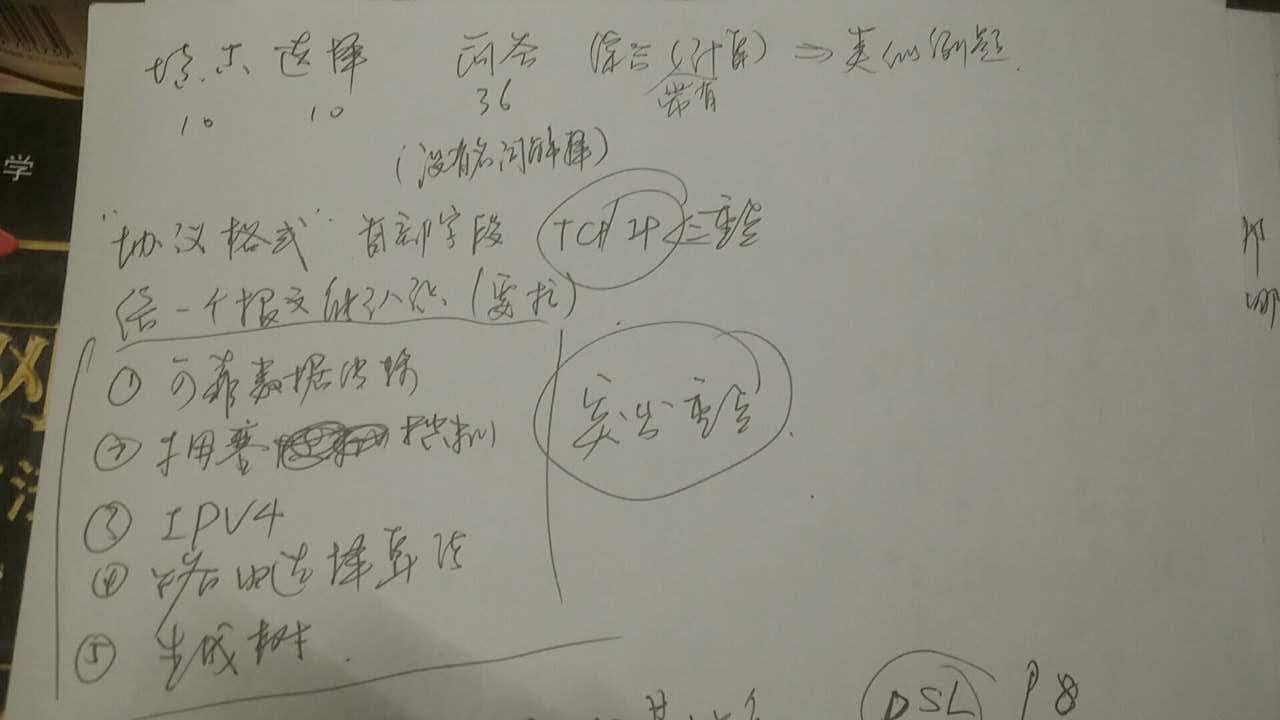 填空 选择 问答 综合(计算) ⇒ 类似例题.
10 10 36 带有
(没有名词解释)
"协议格式" 首部字段 TCP/IP 重点
给一个报文能认识 (要扩)
① 可靠数据传输
② 拥塞 控制
③ IPV4
④ 路由选择算法
⑤ 生成树.
突出重点.
DSL P8
学